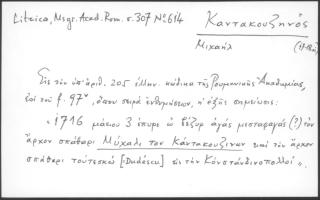 Litzica, Msgr. Acad. Rom. σ. 307 Nº 614
Κανтακουζηνός
Μιχαήλ
Εἰς τὸν ὑπ' ἀριθ. 205 ἑλλην. κώδικα τῆς Ρουμανικῆς Ἀκαδημίας,
ἐπὶ τοῦ f. 97ᵛ, ὅπου σειρὰ ἐνθυμήσεων, ἡ ἑξῆς σημείωσις:
« 1716 μαΐου 3 ἐπῆρε ὁ βεζὺρ ἀγὰς μεσταφαγᾶς (?) τὸν
ἄρχον σπαθάρι Μυχαλι τον Καντακουζινον καὶ τὸν ἄρχον
σπαθάρι τούτεσκο [Dudescu] εἰς τὴν Κόνσταντινοπολλι ».